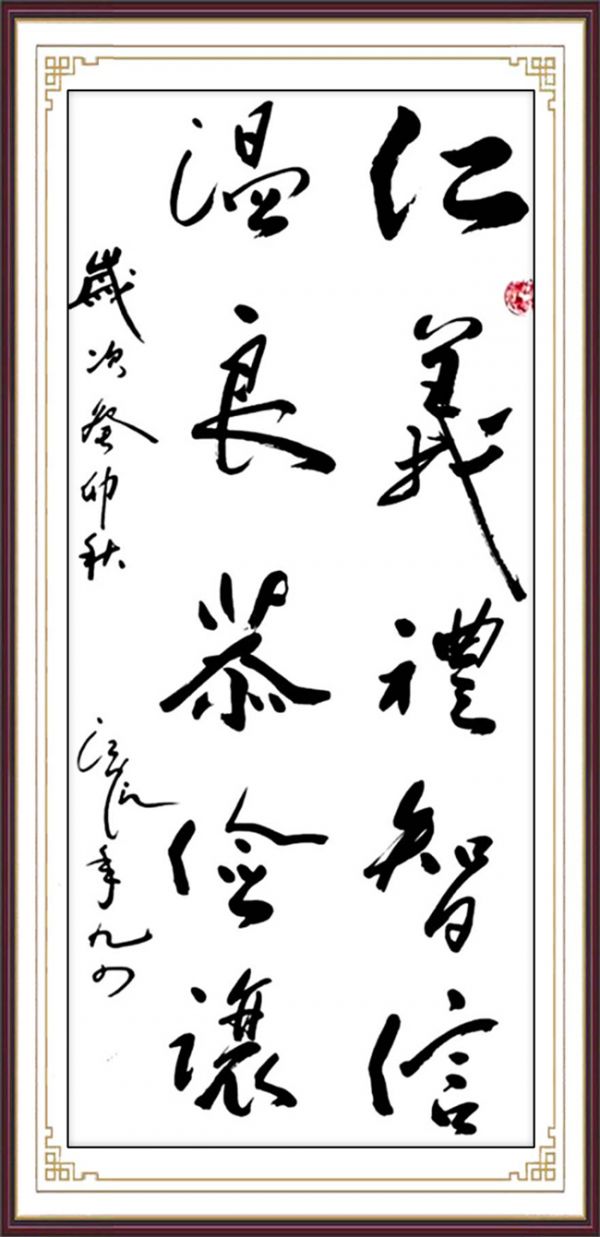 仁義禮智信
溫良恭儉讓
歲次癸卯秋
年九四